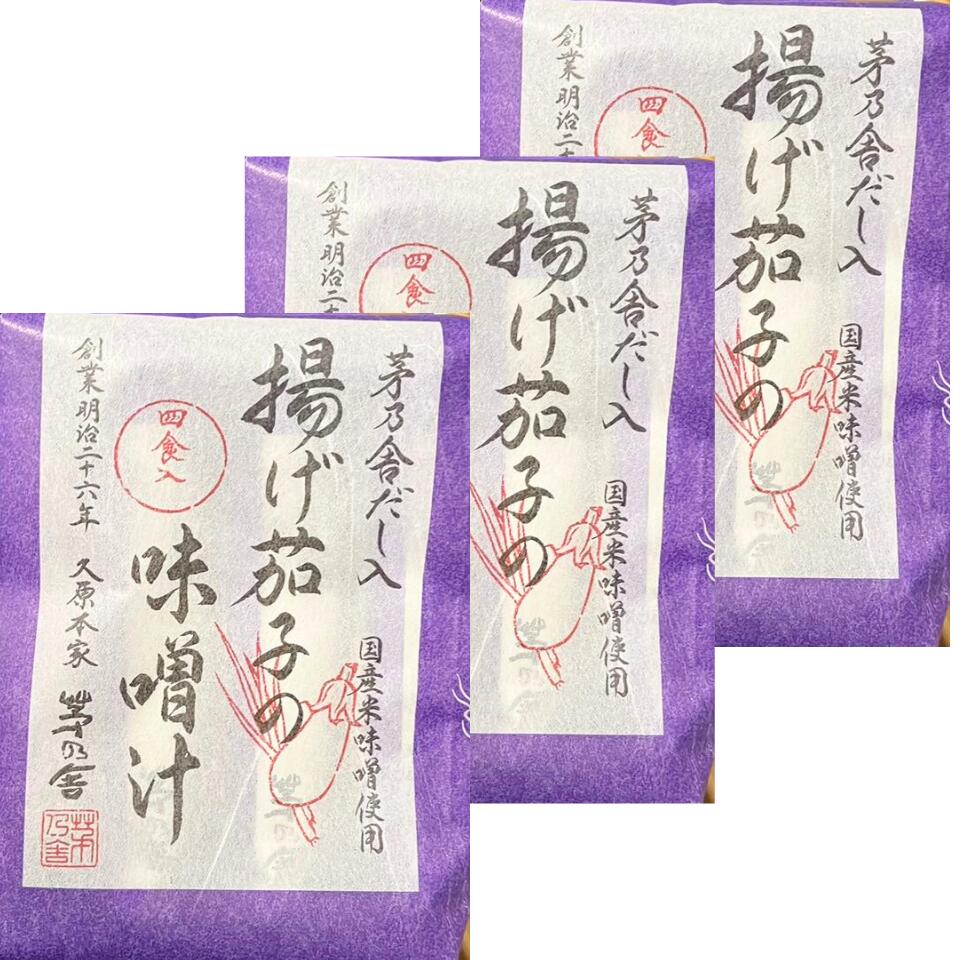 茅乃舎だし入
国産米味噌使用
揚げ茄子の
味噌汁
四食入
創業明治二十六年 久原本家 茅乃舎
茅乃舎
茅乃舎だし入
国産米味噌使用
揚げ茄子の
四食
創業明治二十
茅乃舎だし入
国産米味噌使用
揚げ茄子の
四食
創業明治二十